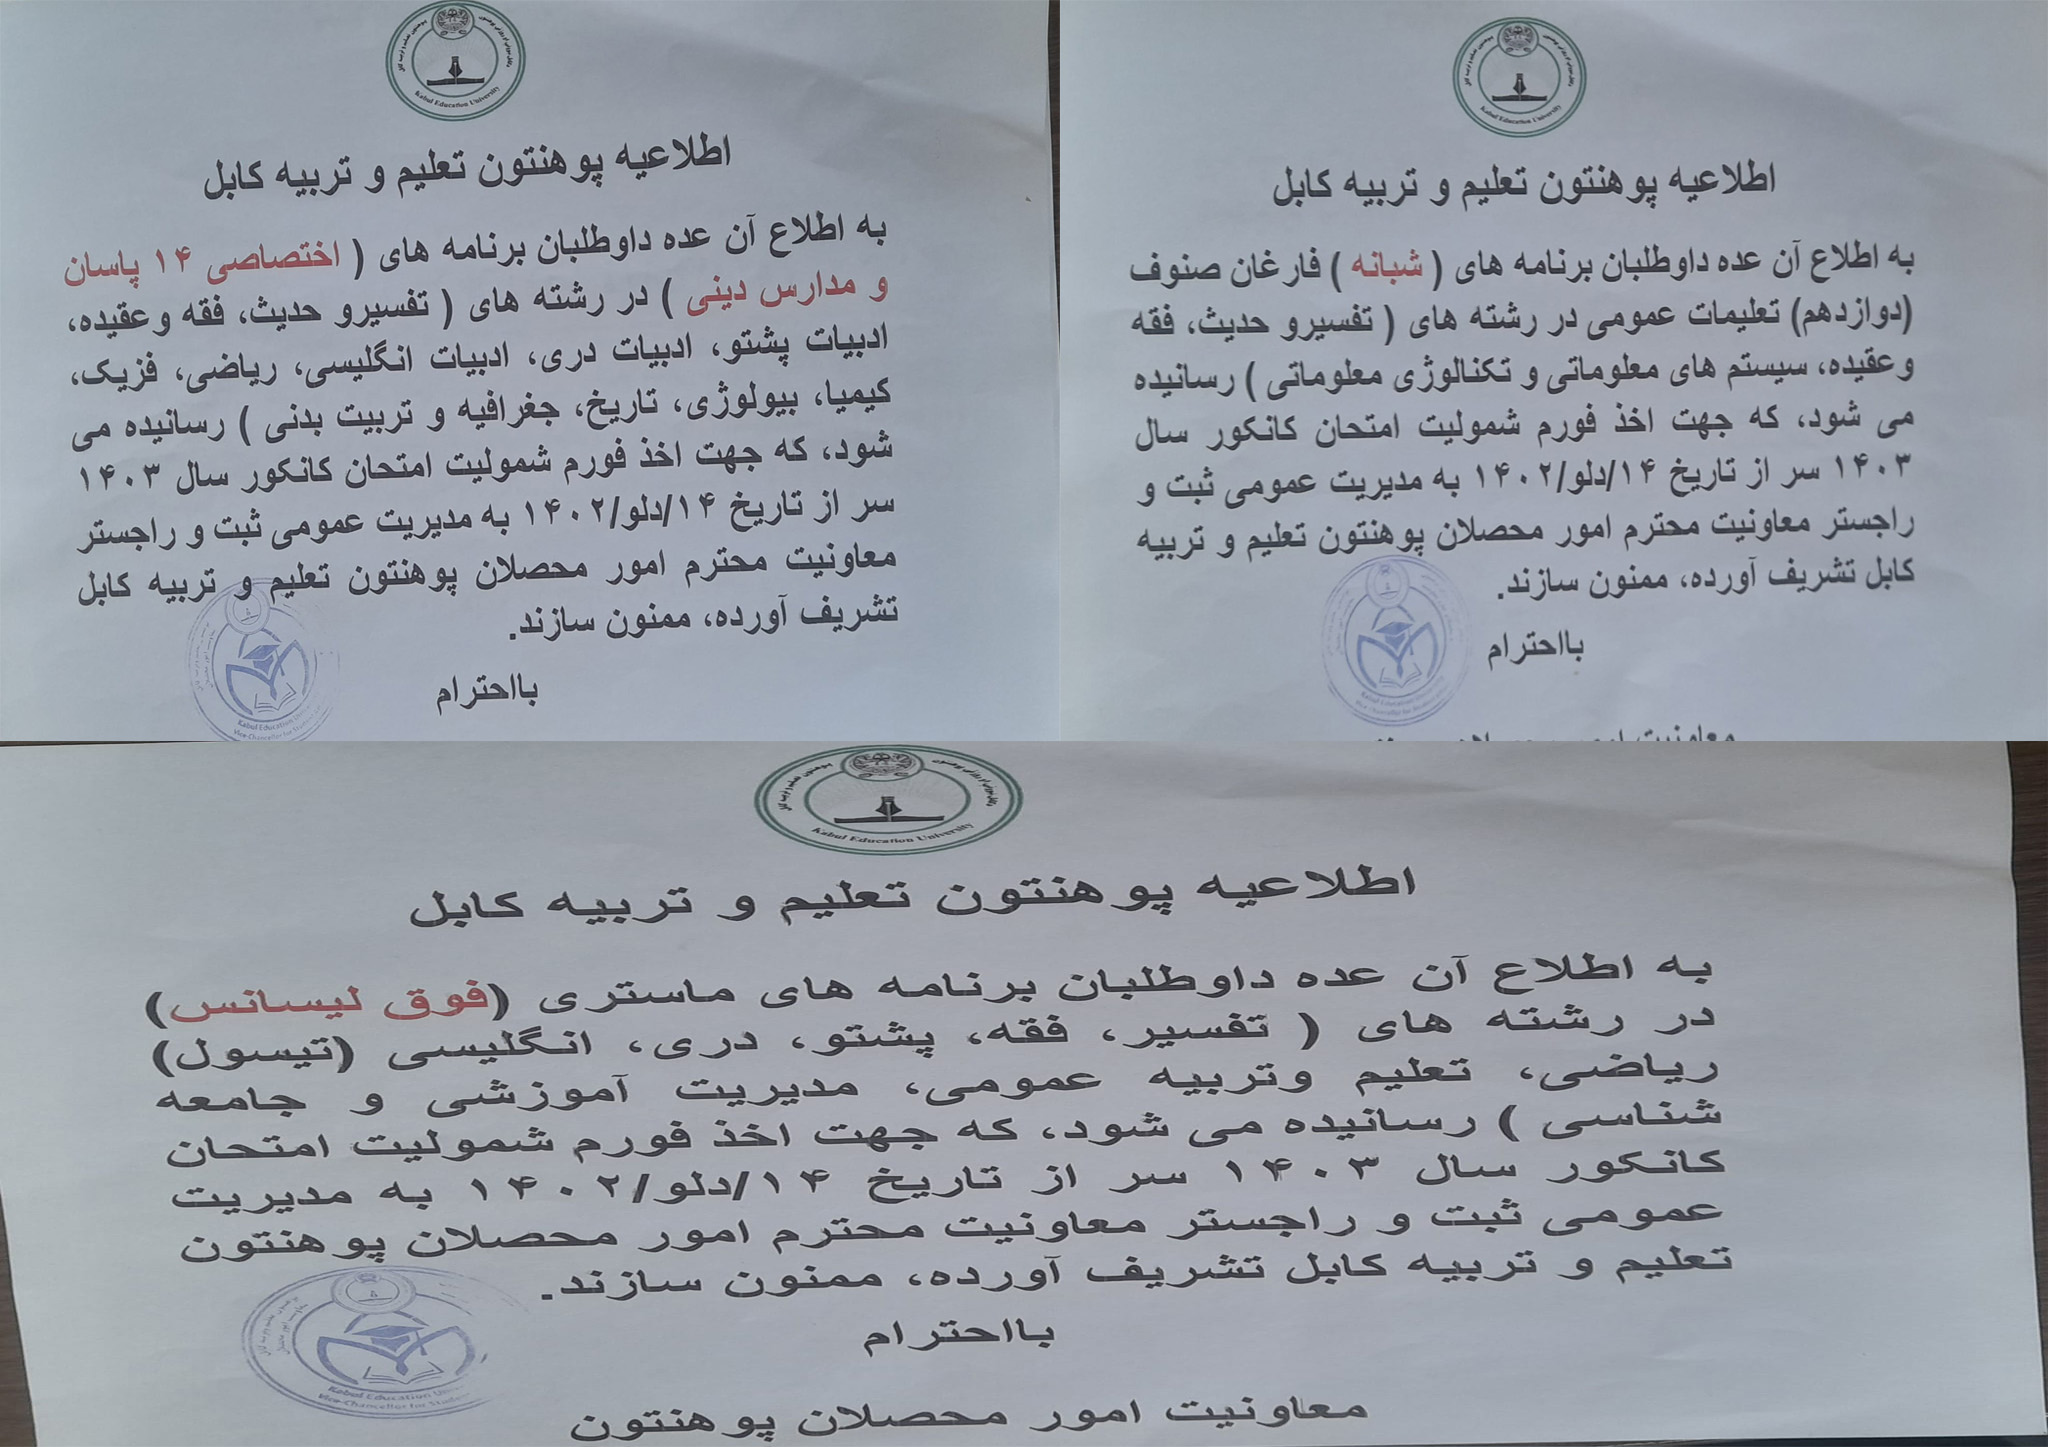 Kabul Education University
اطلاعیه پوهنتون تعلیم و تربیه کابل
به اطلاع آن عده داوطلبان برنامه های ( اختصاصی ۱۴ پاسان
و مدارس دینی ) در رشته های ( تفسیرو حدیث، فقه وعقیده،
ادبیات پشتو، ادبیات دری، ادبیات انگلیسی، ریاضی، فزیک،
کیمیا، بیولوژی، تاریخ، جغرافیه و تربیت بدنی ) رسانیده می
شود، که جهت اخذ فورم شمولیت امتحان کانکور سال ۱۴۰۳
سر از تاریخ ۱۴/دلو/۱۴۰۲ به مدیریت عمومی ثبت و راجستر
معاونیت محترم امور محصلان پوهنتون تعلیم و تربیه کابل
تشریف آورده، ممنون سازند.
بااحترام
Kabul Education
Vice-Chancellor for
Kabul Education University
اطلاعیه پوهنتون تعلیم و تربیه کابل
به اطلاع آن عده داوطلبان برنامه های ( شبانه ) فارغان صنوف
(دوازدهم) تعلیمات عمومی در رشته های ( تفسیرو حدیث، فقه
وعقیده، سیستم های معلوماتی و تکنالوژی معلوماتی ) رسانیده
می شود، که جهت اخذ فورم شمولیت امتحان کانکور سال
۱۴۰۳ سر از تاریخ ۱۴/دلو/۱۴۰۲ به مدیریت عمومی ثبت و
راجستر معاونیت محترم امور محصلان پوهنتون تعلیم و تربیه
کابل تشریف آورده، ممنون سازند.
بااحترام
Kabul Education
Vice-Chancellor for
Kabul Education University
اطلاعیه پوهنتون تعلیم و تربیه کابل
به اطلاع آن عده داوطلبان برنامه های ماستری (فوق لیسانس)
در رشته های ( تفسیر، فقه، پشتو، دری، انگلیسی (تیسول)
ریاضی، تعلیم وتربیه عمومی، مدیریت آموزشی و جامعه
شناسی ) رسانیده می شود، که جهت اخذ فورم شمولیت امتحان
کانکور سال ۱۴۰۳ سر از تاریخ ۱۴/دلو/۱۴۰۲ به مدیریت
عمومی ثبت و راجستر معاونیت محترم امور محصلان پوهنتون
تعلیم و تربیه کابل تشریف آورده، ممنون سازند.
بااحترام
Kabul Education
Vice-Chancellor for
معاونیت امور محصلان پوهنتون